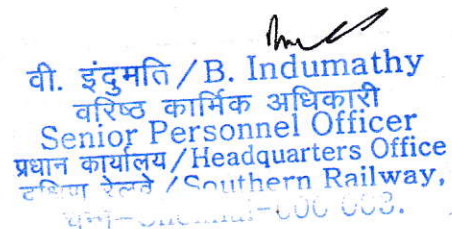 वी. इंदुमति / B. Indumathy
वरिष्ठ कार्मिक अधिकारी
Senior Personnel Officer
प्रधान कार्यालय / Headquarters Office
दक्षिण रेलवे / Southern Railway,